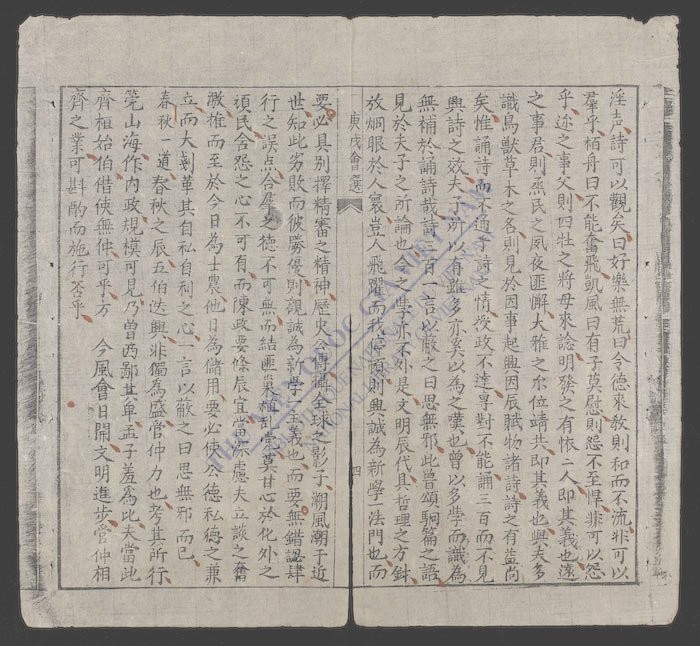 淫声詩可以觀矣曰好樂無荒曰令德來教則和而不流非可以
羣乎栢舟曰不能奮飛凱風曰有子莫慰則怨不至悍非可以怨
乎迩之事父則四牡之將母來諗明發之有懷二人即其義也遠
之事君則烝民之夙夜匪懈大雅之尔位靖共即其義也與夫多
識鳥獸草木之名則見於因事起興因辰賦物諸詩詩之有益尚
矣惟誦詩而不通于詩之情授政不達專對不能誦三百而不見
興詩之效夫子所以有雖多亦奚以為之嘆也曾以多學而識為
無補於誦詩哉詩三百一言以蔽之曰思無邪此曾頌駉篇之語
見於夫子之所論也今之學亦不外是文明辰代具哲理之方針
放烱眼於人寰豈人飛躍而我停頓則興誠為新學一法門也而
庚戌會選
四
要必具別擇精審之精神歷史公傳瞬全球之影子溯風潮于近
世知此劣敗而彼勝優則觀誠為新學一主義也而要無錯認肆
行之誤点合羣之德不可無而結匪巢誼乱黨莫甘心於化外之
頑民含怨之心不可有而陳政要條辰宜當深慮夫立談之奮
激推而至於今日為士農他日為儲用要必使公德私德之兼
立而大剗革其自私自利之心一言以蔽之曰思無邪而已
春秋道春秋之辰五伯迭興非獨為盛管仲力也考其所行
筦山海作内政規模可見乃曾西鄙其卑孟子羞為比夫當此
齊祖始伯借使無仲可乎方
今風會日開文明進步管仲相
齊之業可斟酌而施行否乎